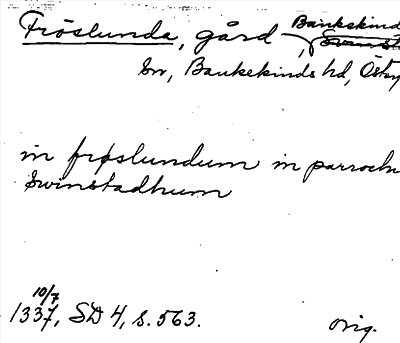 Fröslunda, gård, Bankekind
sn, Bankekinds hd, Östg
in frøslundum in parroch
Swinstadhum
10/7
1337, SD 4, s. 563.
orig.